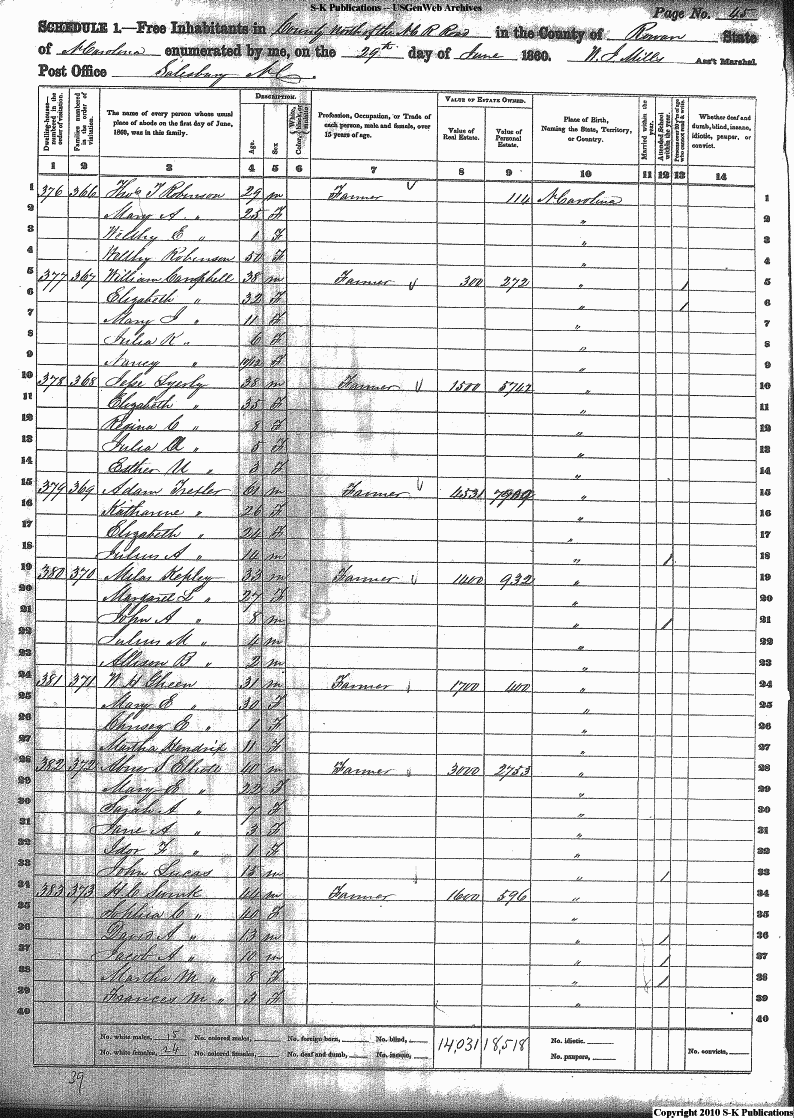 S-K Publications -- USGenWeb Archives
Page No. 45
SCHEDULE 1.—Free Inhabitants in County North of the N.C. R Road in the County of Rowan State
of N Carolina enumerated by me, on the 29th day of June 1860. Ass't Marshal.
Post Office Salisbury N.C.
Dwelling-houses—numbered in the order of visitation.
Families numbered in the order of visitation.
The name of every person whose usual place of abode on the first day of June, 1860, was in this family.
DESCRIPTION.
Age.
Sex
Color, White, black, or mulatto
Profession, Occupation, or Trade of each person, male and female, over 15 years of age.
VALUE OF ESTATE OWNED.
Value of Real Estate.
Value of Personal Estate.
Place of Birth, Naming the State, Territory, or Country.
Married within the year.
Attended School within the year.
Persons over 20 y'rs of age who cannot read & write.
Whether deaf and dumb, blind, insane, idiotic, pauper, or convict.
1 2 3 4 5 6 7 8 9 10 11 12 13 14
1 376 366 Thos T Robinson 29 m Farmer 114 N Carolina 1
2 Mary A. " 25 F " 2
3 E " 1 F " 3
4 Robinson 50 F " 4
5 377 367 William Campbell 38 m Farmer 300 272 " / 5
6 Elizabeth " 32 F " / 6
7 Mary J " 11 F " 7
8 Julia K " 6 F " 8
9 Nancy " F " 9
10 378 368 Jesse Lyerly 38 m Farmer 1500 5742 " 10
11 Elizabeth " 35 F " 11
12 Regina C " 8 F " 12
13 Julia A " 5 F " 13
14 Esther " 3 F " 14
15 379 369 Adam Trexler m Farmer 4531 " 15
16 Katharine " 26 F " 16
17 Elizabeth " 24 F " 17
18 Julius A " 14 m " / 18
19 380 370 Milas Kepley 33 m Farmer 1400 932 " 19
20 Margaret L " 27 F " 20
21 John A " 8 m " / 21
22 Julius M " 4 m " 22
23 Allison B " 2 m " 23
24 381 371 W H Cheen 31 m Farmer 1700 400 " 24
25 Mary E " 30 F " 25
26 E " 1 F " 26
27 Martha Hendrix 11 F " 27
28 382 372 Abner S Elliott 40 m Farmer 3000 2753 " 28
29 Mary E " 22 F " 29
30 Sarah A " 7 F " 30
31 Jane A " 3 F " 31
32 Idor F " 1 F " 32
33 John Lucas 15 m " / 33
34 383 373 H C Swink 44 m Farmer 1600 596 " 34
35 Sophia C " 40 F " 35
36 David A " 13 m " / 36
37 Jacob A " 10 m " / 37
38 Martha M " 8 F " / 38
39 Frances M " 3 F " 39
40 40
No. white males, 15 No. colored males, No. foreign born, No. blind, 14,031 18,518 No. idiotic,
No. white females, 24 No. colored females, No. deaf and dumb, No. insane, No. paupers, No. convicts,
39
Copyright 2010 S-K Publications